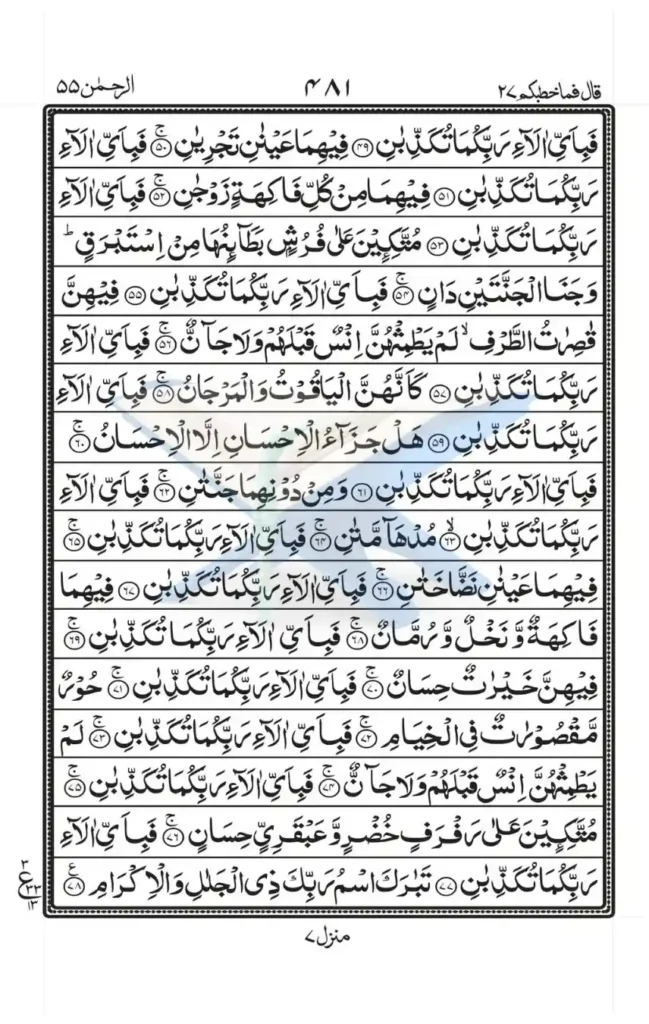 قال فماخطبكم ٢٧ ٤٨١ الرحمٰن ٥٥
فَبِاَيِّ اٰلَآءِ رَبِّكُمَا تُكَذِّبٰنِ ﴿۴۹﴾ فِيْهِمَا عَيْنٰنِ تَجْرِيٰنِ ﴿۵۰﴾ۚ فَبِاَيِّ اٰلَآءِ
رَبِّكُمَا تُكَذِّبٰنِ ﴿۵۱﴾ فِيْهِمَا مِنْ كُلِّ فَاكِهَةٍ زَوْجٰنِ ﴿۵۲﴾ۚ فَبِاَيِّ اٰلَآءِ
رَبِّكُمَا تُكَذِّبٰنِ ﴿۵۳﴾ مُتَّكِـِٕيْنَ عَلٰى فُرُشٍۭ بَطَآىِٕنُهَا مِنْ اِسْتَبْرَقٍ ؕ
وَجَنَا الْجَنَّتَيْنِ دَانٍ ﴿۵۴﴾ۚ فَبِاَيِّ اٰلَآءِ رَبِّكُمَا تُكَذِّبٰنِ ﴿۵۵﴾ فِيْهِنَّ
قٰصِرٰتُ الطَّرْفِ ۙ لَمْ يَطْمِثْهُنَّ اِنْسٌ قَبْلَهُمْ وَلَا جَآنٌّ ﴿۵۶﴾ۚ فَبِاَيِّ اٰلَآءِ
رَبِّكُمَا تُكَذِّبٰنِ ﴿۵۷﴾ كَاَنَّهُنَّ الْيَاقُوْتُ وَالْمَرْجَانُ ﴿۵۸﴾ۚ فَبِاَيِّ اٰلَآءِ
رَبِّكُمَا تُكَذِّبٰنِ ﴿۵۹﴾ هَلْ جَزَآءُ الْاِحْسَانِ اِلَّا الْاِحْسَانُ ﴿۶۰﴾ۚ
فَبِاَيِّ اٰلَآءِ رَبِّكُمَا تُكَذِّبٰنِ ﴿۶۱﴾ وَمِنْ دُوْنِهِمَا جَنَّتٰنِ ﴿۶۲﴾ۚ فَبِاَيِّ اٰلَآءِ
رَبِّكُمَا تُكَذِّبٰنِ ﴿۶۳﴾ۙ مُدْهَآمَّتٰنِ ﴿۶۴﴾ۚ فَبِاَيِّ اٰلَآءِ رَبِّكُمَا تُكَذِّبٰنِ ﴿۶۵﴾ۚ
فِيْهِمَا عَيْنٰنِ نَضَّاخَتٰنِ ﴿۶۶﴾ۚ فَبِاَيِّ اٰلَآءِ رَبِّكُمَا تُكَذِّبٰنِ ﴿۶۷﴾ فِيْهِمَا
فَاكِهَةٌ وَّنَخْلٌ وَّرُمَّانٌ ﴿۶۸﴾ۚ فَبِاَيِّ اٰلَآءِ رَبِّكُمَا تُكَذِّبٰنِ ﴿۶۹﴾ۚ
فِيْهِنَّ خَيْرٰتٌ حِسَانٌ ﴿۷۰﴾ۚ فَبِاَيِّ اٰلَآءِ رَبِّكُمَا تُكَذِّبٰنِ ﴿۷۱﴾ۚ حُوْرٌ
مَّقْصُوْرٰتٌ فِي الْخِيَامِ ﴿۷۲﴾ۚ فَبِاَيِّ اٰلَآءِ رَبِّكُمَا تُكَذِّبٰنِ ﴿۷۳﴾ۚ لَمْ
يَطْمِثْهُنَّ اِنْسٌ قَبْلَهُمْ وَلَا جَآنٌّ ﴿۷۴﴾ۚ فَبِاَيِّ اٰلَآءِ رَبِّكُمَا تُكَذِّبٰنِ ﴿۷۵﴾ۚ
مُتَّكِـِٕيْنَ عَلٰى رَفْرَفٍ خُضْرٍ وَّعَبْقَرِيٍّ حِسَانٍ ﴿۷۶﴾ۚ فَبِاَيِّ اٰلَآءِ
رَبِّكُمَا تُكَذِّبٰنِ ﴿۷۷﴾ تَبٰرَكَ اسْمُ رَبِّكَ ذِي الْجَلٰلِ وَالْاِكْرَامِ ﴿۷۸﴾ۧ
٣
ع
٣٣
١٣
منزل ٧